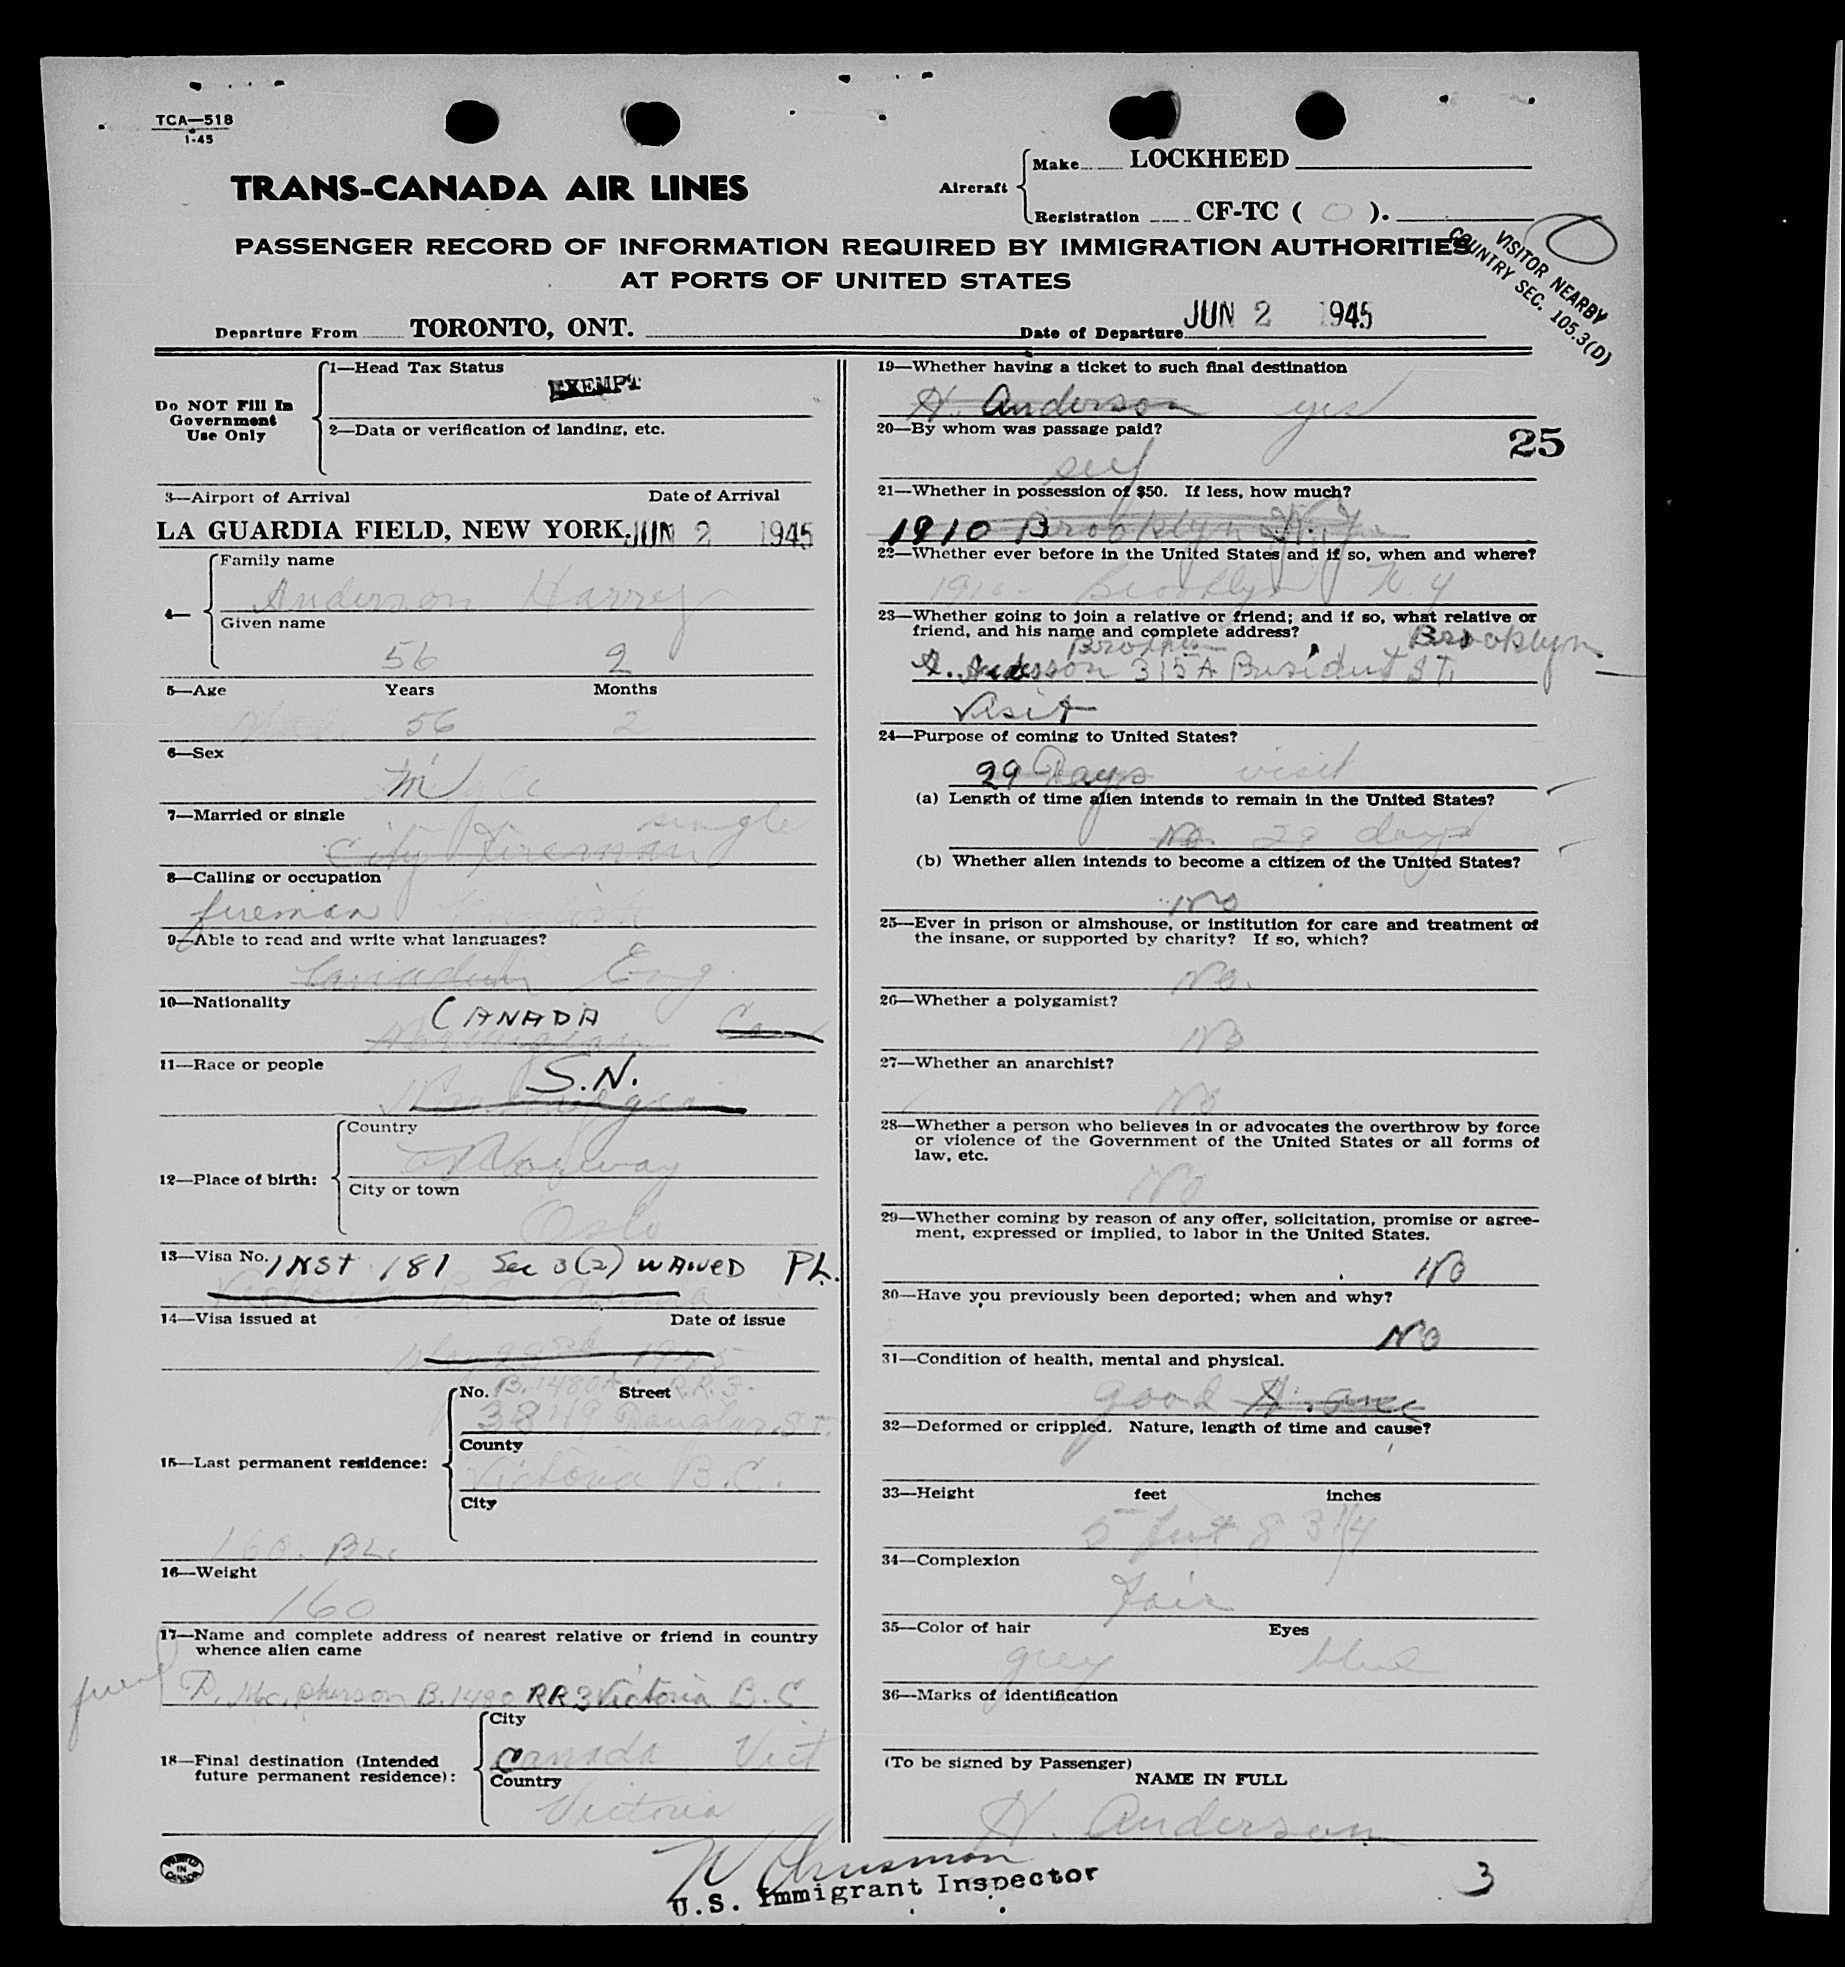 TCA—518
1-45
TRANS-CANADA AIR LINES
Aircraft
Make LOCKHEED
Registration CF-TC ( O ).
PASSENGER RECORD OF INFORMATION REQUIRED BY IMMIGRATION AUTHORITIES
AT PORTS OF UNITED STATES
VISITOR NEARBY
COUNTRY SEC. 105.3(D)
Departure From TORONTO, ONT. Date of Departure JUN 2 1945
Do NOT Fill In
Government
Use Only
1—Head Tax Status
EXEMPT
2—Data or verification of landing, etc.
3—Airport of Arrival Date of Arrival
LA GUARDIA FIELD, NEW YORK. JUN 2 1945
4—
Family name
Anderson Harry
Given name
56 2
5—Age Years Months
56 2
6—Sex
M
7—Married or single
single
City Fireman
8—Calling or occupation
fireman
9—Able to read and write what languages?
Canadian Eng.
10—Nationality
CANADA Can
11—Race or people
S.N.
12—Place of birth:
Country
Norway
City or town
Oslo
13—Visa No. INST 181 Sec 3(2) WAIVED P.L.
14—Visa issued at Date of issue
15—Last permanent residence:
No. B.1480 Street R.R.3.
3849 Douglas St.
County
Victoria B.C.
City
160.
16—Weight
160
17—Name and complete address of nearest relative or friend in country
whence alien came
friend
D. Mc.pherson B.1480 RR3 Victoria B.C
18—Final destination (Intended
future permanent residence):
City
Canada Vict
Country
Victoria
PRINTED
IN
CANADA
19—Whether having a ticket to such final destination
H. Anderson yes
20—By whom was passage paid?
25
self
21—Whether in possession of $50. If less, how much?
1910 Brooklyn N.Y.
22—Whether ever before in the United States and if so, when and where?
1910 Brooklyn N.Y
23—Whether going to join a relative or friend; and if so, what relative or
friend, and his name and complete address?
Brother Brooklyn
A. Anderson 315A President ST.
Visit
24—Purpose of coming to United States?
29 Days visit
(a) Length of time alien intends to remain in the United States?
No. 29 days
(b) Whether alien intends to become a citizen of the United States?
No
25—Ever in prison or almshouse, or institution for care and treatment of
the insane, or supported by charity? If so, which?
No.
26—Whether a polygamist?
No
27—Whether an anarchist?
No
28—Whether a person who believes in or advocates the overthrow by force
or violence of the Government of the United States or all forms of
law, etc.
No
29—Whether coming by reason of any offer, solicitation, promise or agree-
ment, expressed or implied, to labor in the United States.
No
30—Have you previously been deported; when and why?
No
31—Condition of health, mental and physical.
good
32—Deformed or crippled. Nature, length of time and cause?
33—Height feet inches
5 feet 8 3/4
34—Complexion
Fair
35—Color of hair Eyes
grey blue
36—Marks of identification
(To be signed by Passenger)
NAME IN FULL
H. Anderson
U.S. Immigrant Inspector
3